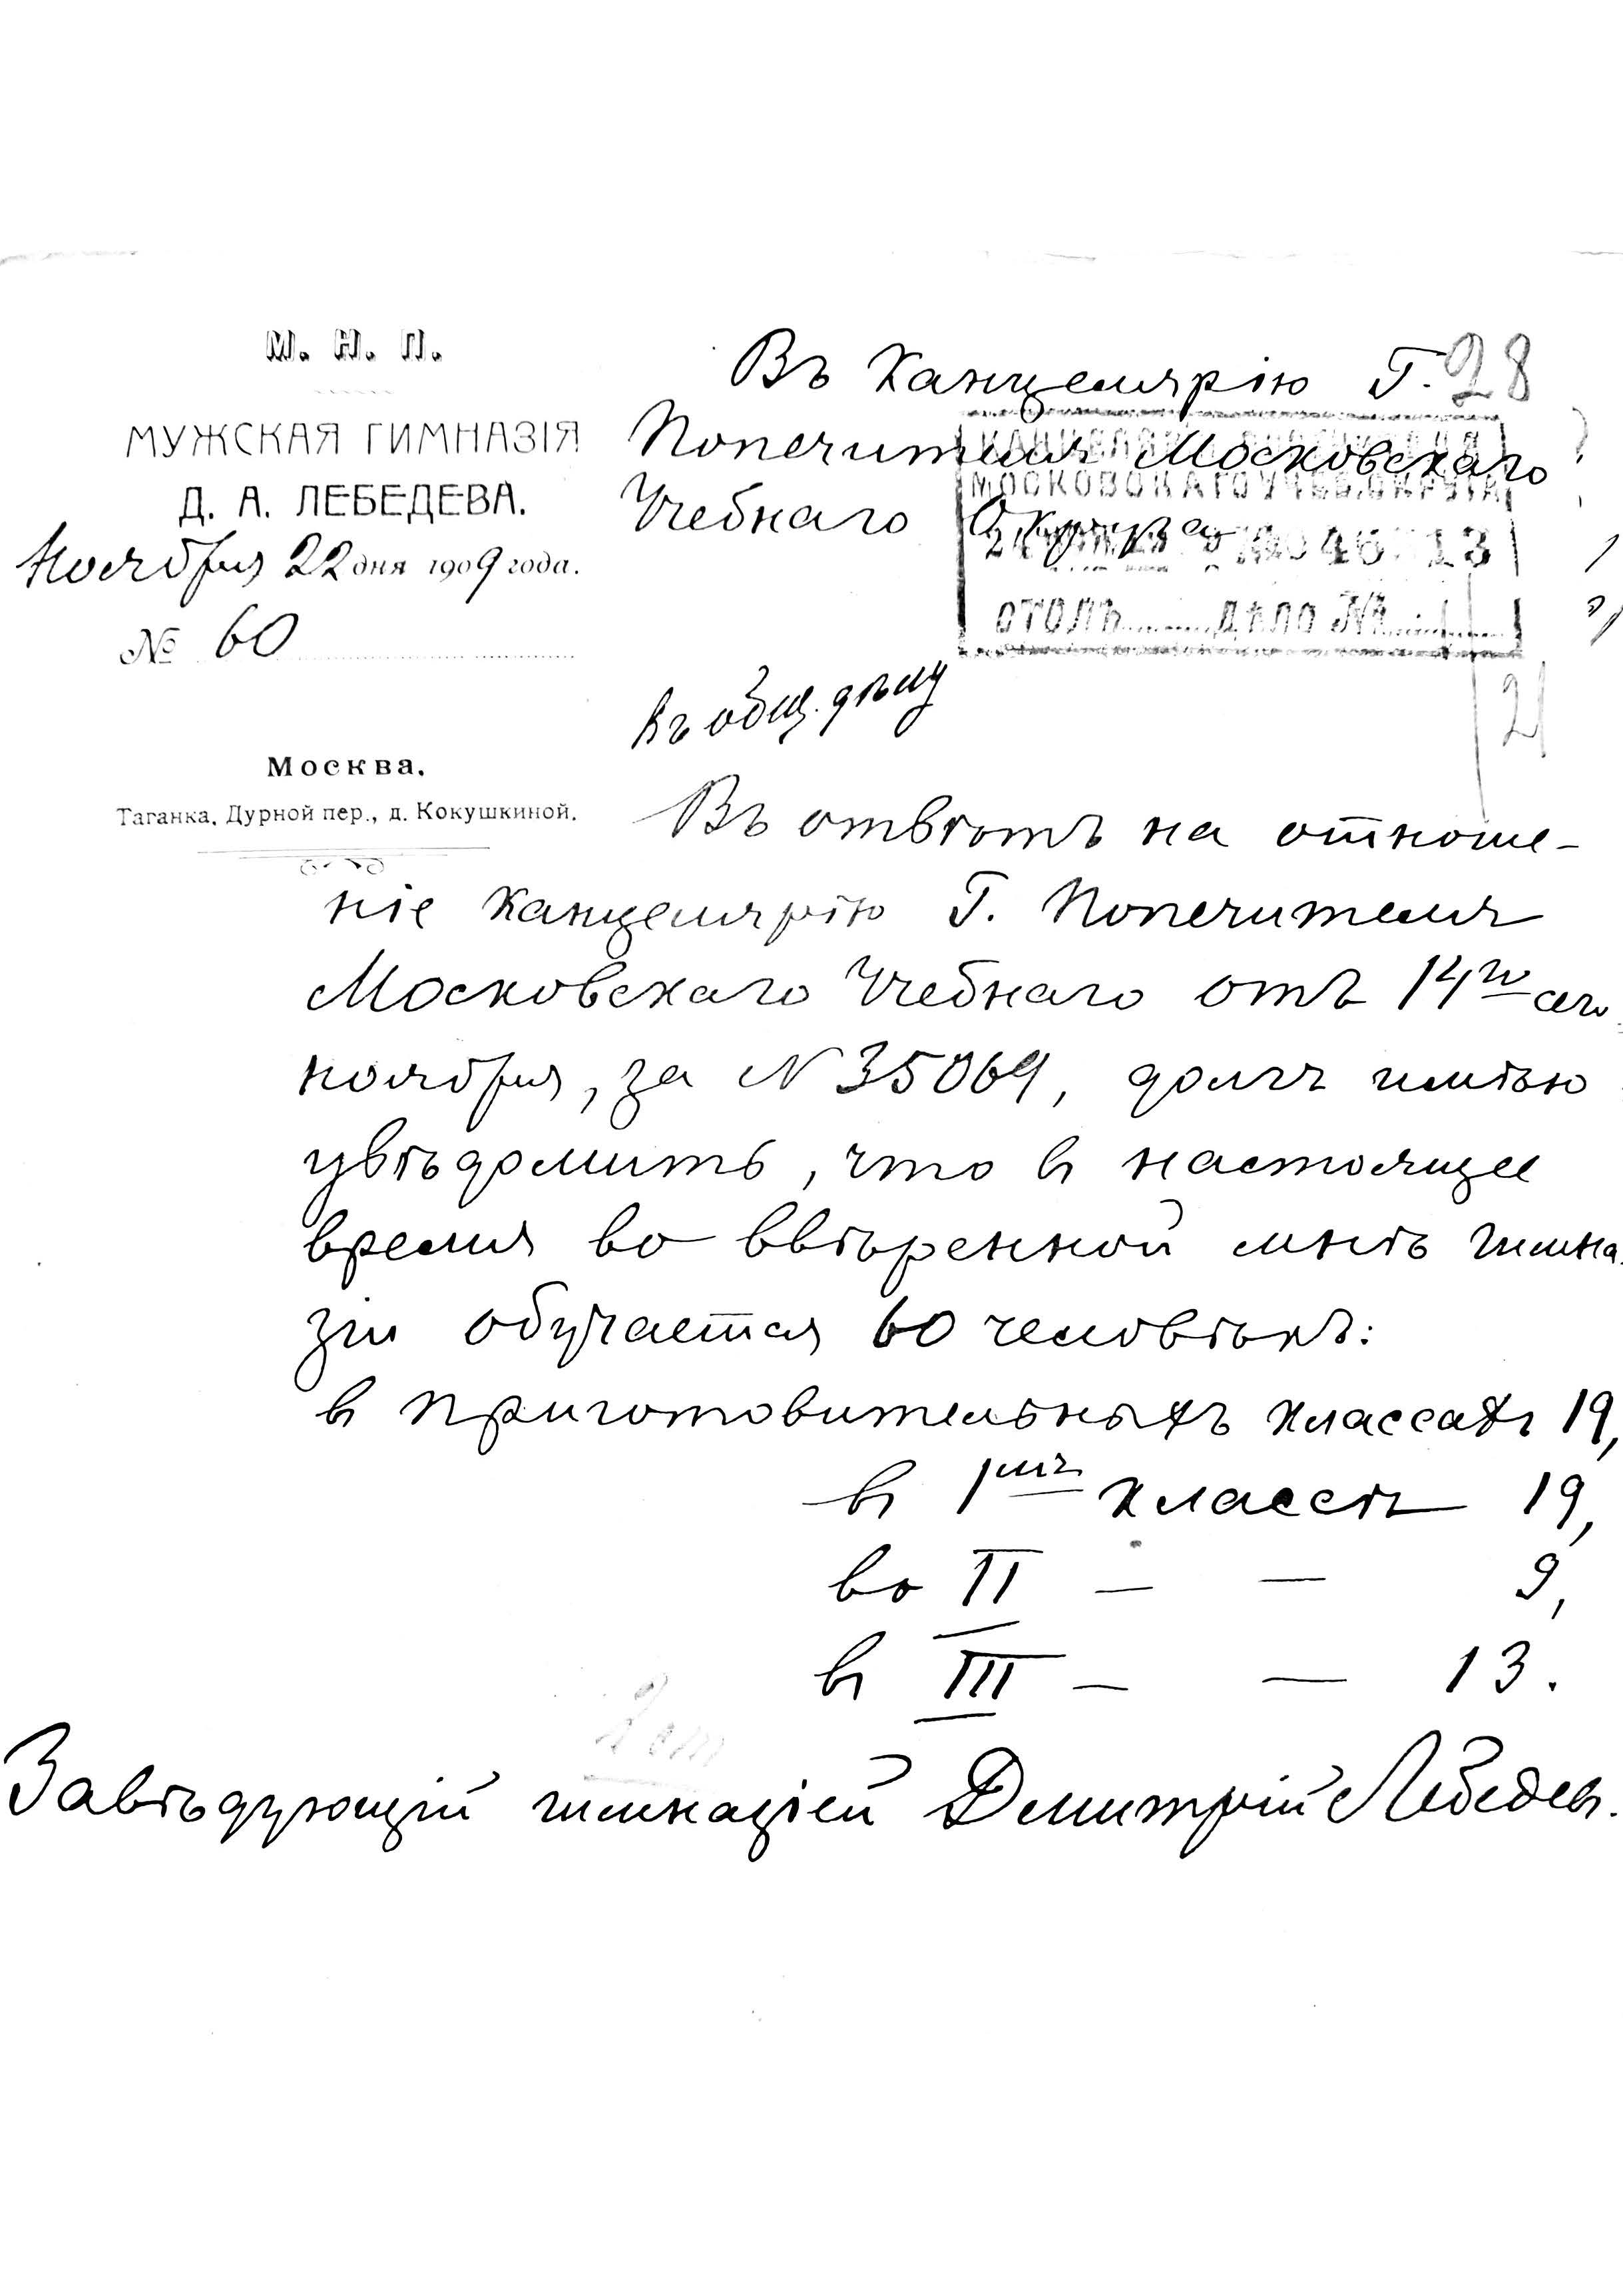 М. Н. П.
МУЖСКАЯ ГИМНАЗІЯ
Д. А. ЛЕБЕДЕВА.
Ноября 22 дня 1909 года.
№ 60
Москва.
Таганка, Дурной пер., д. Кокушкиной.
28
Въ Канцелярію Г.
Попечителя Московскаго
Учебнаго Округа
МОСКОВСКАГО УЧЕБ. ОКРУГА
СТОЛЪ ДѢЛО №
21
въ общ. дѣлу
Въ отвѣтъ на отноше-
ніе Канцелярію Г. Попечителя
Московскаго Учебнаго отъ 14го сего
ноября, за N 35069, долгъ имѣю
увѣдомить, что въ настоящее
время во ввѣренной мнѣ гимна-
зіи обучается 60 человѣкъ:
въ приготовительныхъ классахъ 19,
въ 1мъ классѣ 19,
во II — — 9,
въ III — — 13.
Завѣдующій гимназіей Дмитрій Лебедевъ.